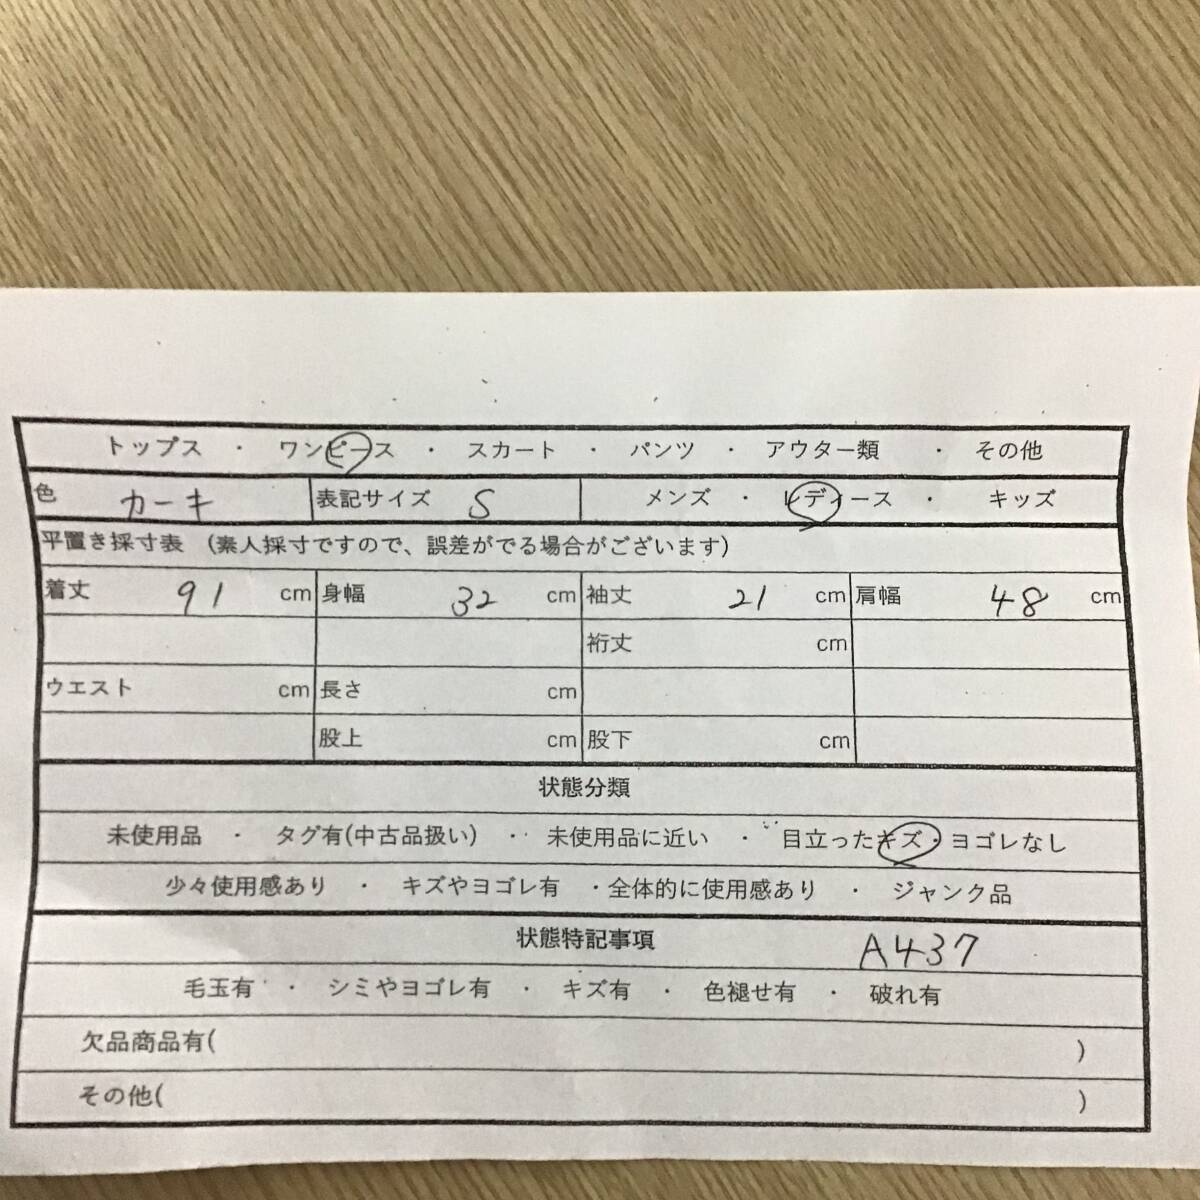 トップス ・ ワンピース ・ スカート ・ パンツ ・ アウター類 ・ その他
色 カーキ 表記サイズ S メンズ ・ レディース ・ キッズ
平置き採寸表 (素人採寸ですので、誤差がでる場合がございます)
着丈 91 cm 身幅 32 cm 袖丈 21 cm 肩幅 48 cm
裄丈 cm
ウエスト cm 長さ cm
股上 cm 股下 cm
状態分類
未使用品 ・ タグ有(中古品扱い) ・ 未使用品に近い ・ 目立ったキズ・ヨゴレなし
少々使用感あり ・ キズやヨゴレ有 ・全体的に使用感あり ・ ジャンク品
状態特記事項 A437
毛玉有 ・ シミやヨゴレ有 ・ キズ有 ・ 色褪せ有 ・ 破れ有
欠品商品有( )
その他( )